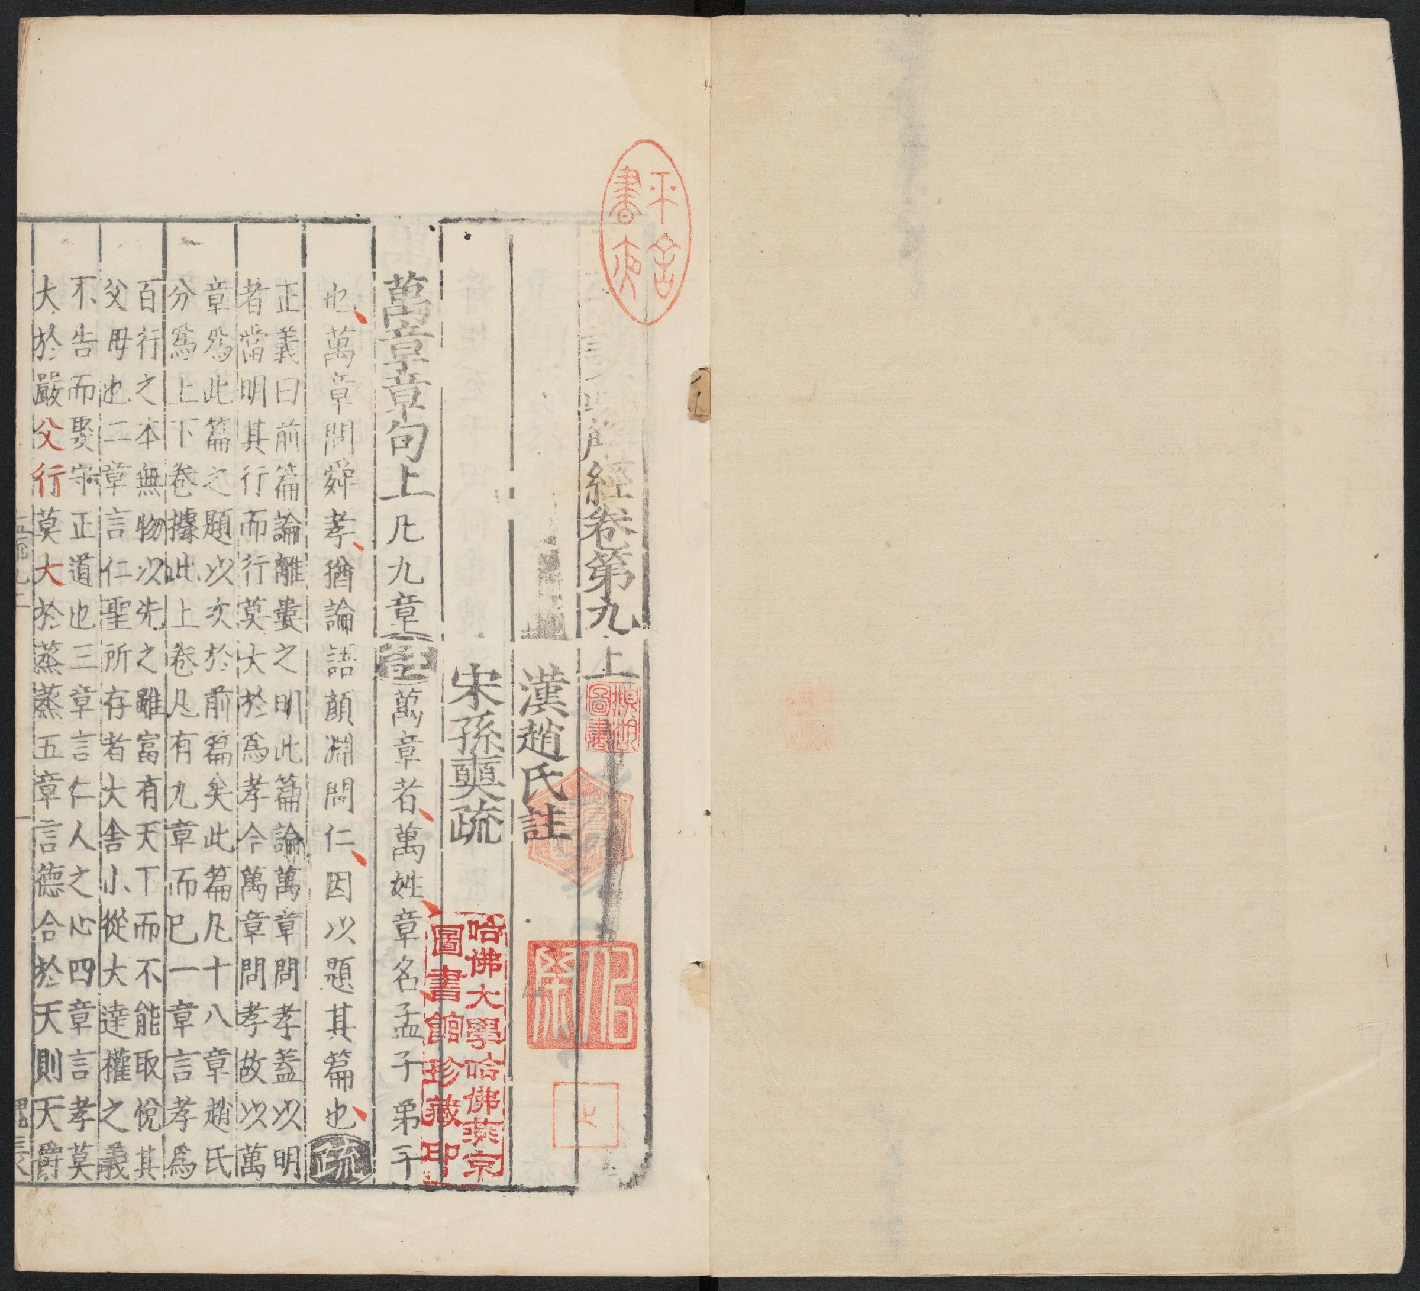 解經卷第九上
漢趙氏註
宋孫奭疏
萬章章句上凡九章註萬章者萬姓章名孟子弟子
也萬章問舜孝猶論語顔淵問仁因以題其篇也疏
正義曰前篇論離婁之明此篇論萬章問孝蓋以明
者當明其行而行莫大於爲孝今萬章問孝故以萬
章爲此篇之題以次於前篇矣此篇凡十八章趙氏
分爲上下卷據此上卷凡有九章而已一章言孝爲
百行之本無物以先之雖富有天下而不能取悅其
父毋也二章言仁聖所存者大舍小從大達權之義
不告而娶守正道也三章言仁人之心四章言孝莫
大於嚴父行莫大於蒸蒸五章言德合於天則天爵
哈佛大學哈佛燕京
圖書館珍藏印